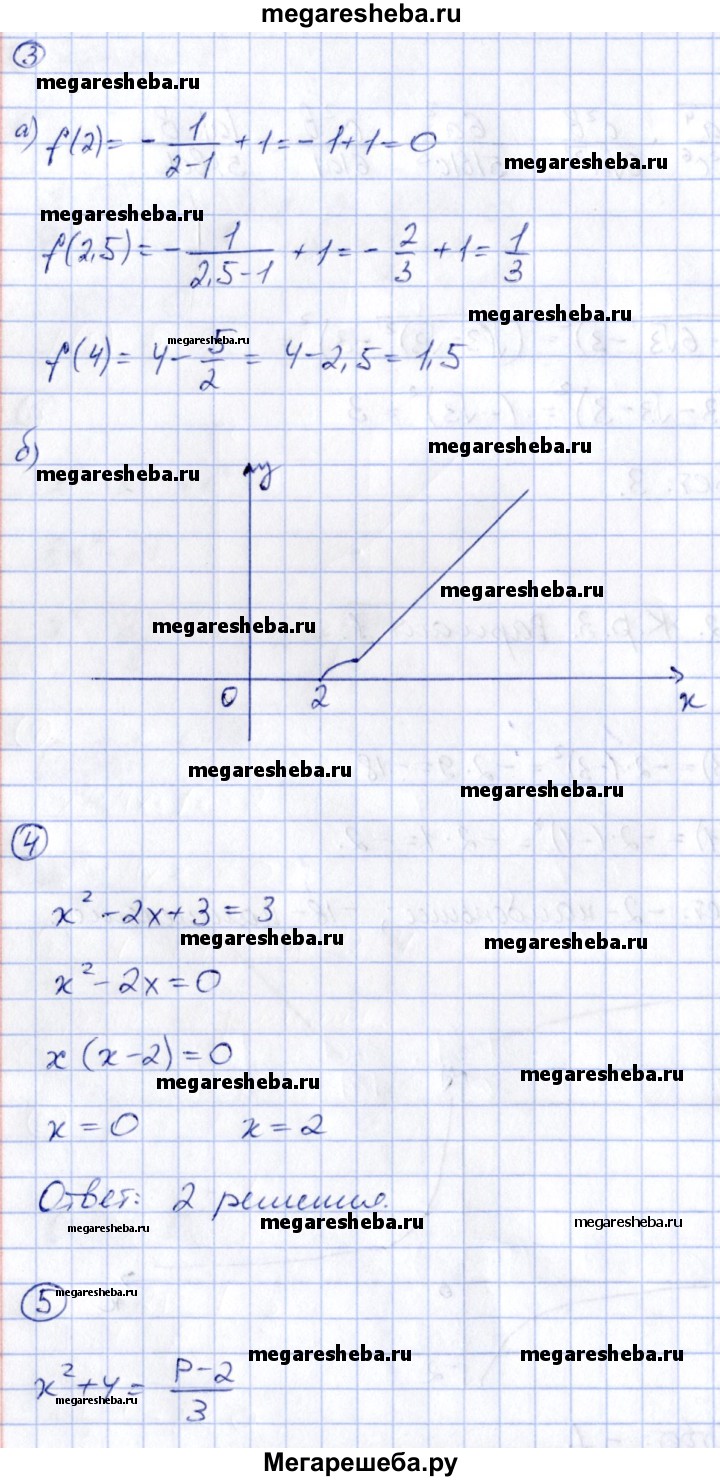 megaresheba.ru
3
megaresheba.ru
а) f(2) = - 1/(2-1) + 1 = - 1 + 1 = 0
megaresheba.ru
megaresheba.ru
f(2,5) = - 1/(2,5-1) + 1 = - 2/3 + 1 = 1/3
megaresheba.ru
megaresheba.ru
f(4) = 4 - 5/2 = 4 - 2,5 = 1,5
megaresheba.ru
б)
megaresheba.ru
y
megaresheba.ru
megaresheba.ru
0 2 x
megaresheba.ru
megaresheba.ru
4
x² - 2x + 3 = 3
megaresheba.ru
megaresheba.ru
x² - 2x = 0
x (x - 2) = 0
megaresheba.ru
megaresheba.ru
x = 0 x = 2
Ответ: 2 решения.
megaresheba.ru
megaresheba.ru
megaresheba.ru
5
megaresheba.ru
megaresheba.ru
megaresheba.ru
x² + 4 = (p - 2)/3
megaresheba.ru
Мегарешеба.ру